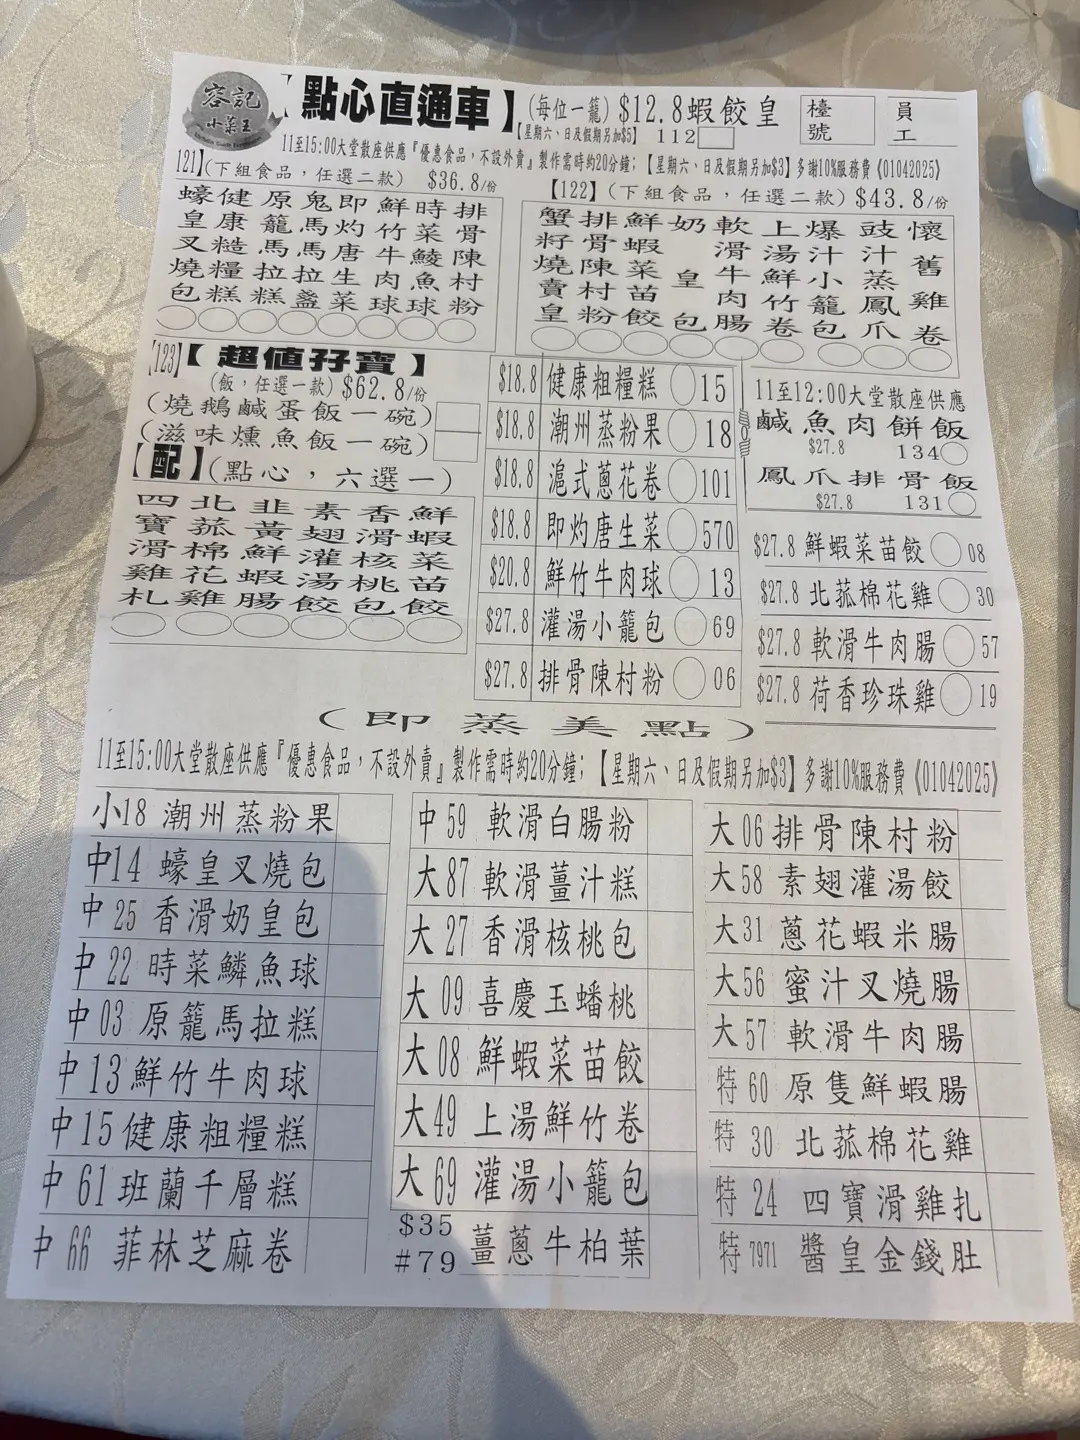 容記
小菜王
【點心直通車】(每位一籠) $12.8蝦餃皇
【星期六、日及假期另加$5】 112
檯號
員工
11至15:00大堂散座供應『優惠食品，不設外賣』製作需時約20分鐘;【星期六、日及假期另加$3】多謝10%服務費《01042025》
121】(下組食品，任選二款) $36.8/份
蠔皇叉燒包
健康糙糧糕
原籠馬拉糕
鬼馬馬拉盞
即灼唐生菜
鮮竹牛肉球
時菜鯪魚球
排骨陳村粉
【122】(下組食品，任選二款) $43.8/份
蟹籽燒賣皇
排骨陳村粉
鮮蝦菜苗餃
奶皇包
軟滑牛肉腸
上湯鮮竹卷
爆汁小籠包
豉汁蒸鳳爪
懷舊雞卷
[123]【超值孖寶】
(飯，任選一款) $62.8/份
(燒鵝鹹蛋飯一碗)
(滋味燻魚飯一碗)
【配】(點心，六選一)
四寶滑雞札
北菰棉花雞
韭黃鮮蝦腸
素翅灌湯餃
香滑核桃包
鮮蝦菜苗餃
$18.8 健康粗糧糕 15
$18.8 潮州蒸粉果 18
$18.8 滬式蔥花卷 101
$18.8 即灼唐生菜 570
$20.8 鮮竹牛肉球 13
$27.8 灌湯小籠包 69
$27.8 排骨陳村粉 06
11至12:00大堂散座供應
鹹魚肉餅飯
$27.8 134
鳳爪排骨飯
$27.8 131
$27.8 鮮蝦菜苗餃 08
$27.8 北菰棉花雞 30
$27.8 軟滑牛肉腸 57
$27.8 荷香珍珠雞 19
(即蒸美點)
11至15:00大堂散座供應『優惠食品，不設外賣』製作需時約20分鐘;【星期六、日及假期另加$3】多謝10%服務費《01042025》
小18 潮州蒸粉果
中14 蠔皇叉燒包
中 25 香滑奶皇包
中 22 時菜鱗魚球
中 03 原籠馬拉糕
中 13 鮮竹牛肉球
中 15 健康粗糧糕
中 61 班蘭千層糕
中 66 菲林芝麻卷
中 59 軟滑白腸粉
大 87 軟滑薑汁糕
大 27 香滑核桃包
大 09 喜慶玉蟠桃
大 08 鮮蝦菜苗餃
大 49 上湯鮮竹卷
大 69 灌湯小籠包
$35
#79 薑蔥牛柏葉
大 06 排骨陳村粉
大 58 素翅灌湯餃
大 31 蔥花蝦米腸
大 56 蜜汁叉燒腸
大 57 軟滑牛肉腸
特 60 原隻鮮蝦腸
特 30 北菰棉花雞
特 24 四寶滑雞扎
特 7971 醬皇金錢肚